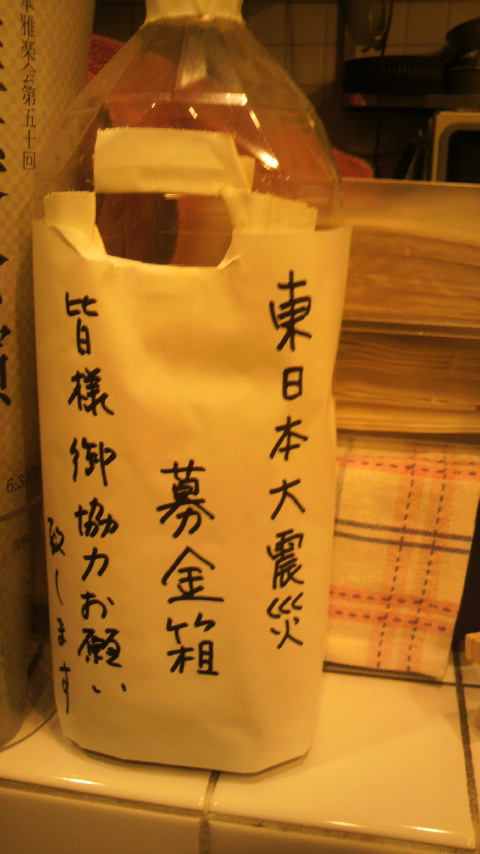 東日本大震災
募金箱
皆様御協力お願い
致します
雅楽会第五十回